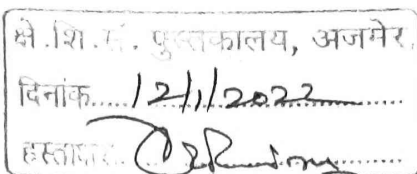 क्षे.शि.सं. पुस्तकालय, अजमेर
दिनांक.....12/1/2022............
हस्ताक्षर..